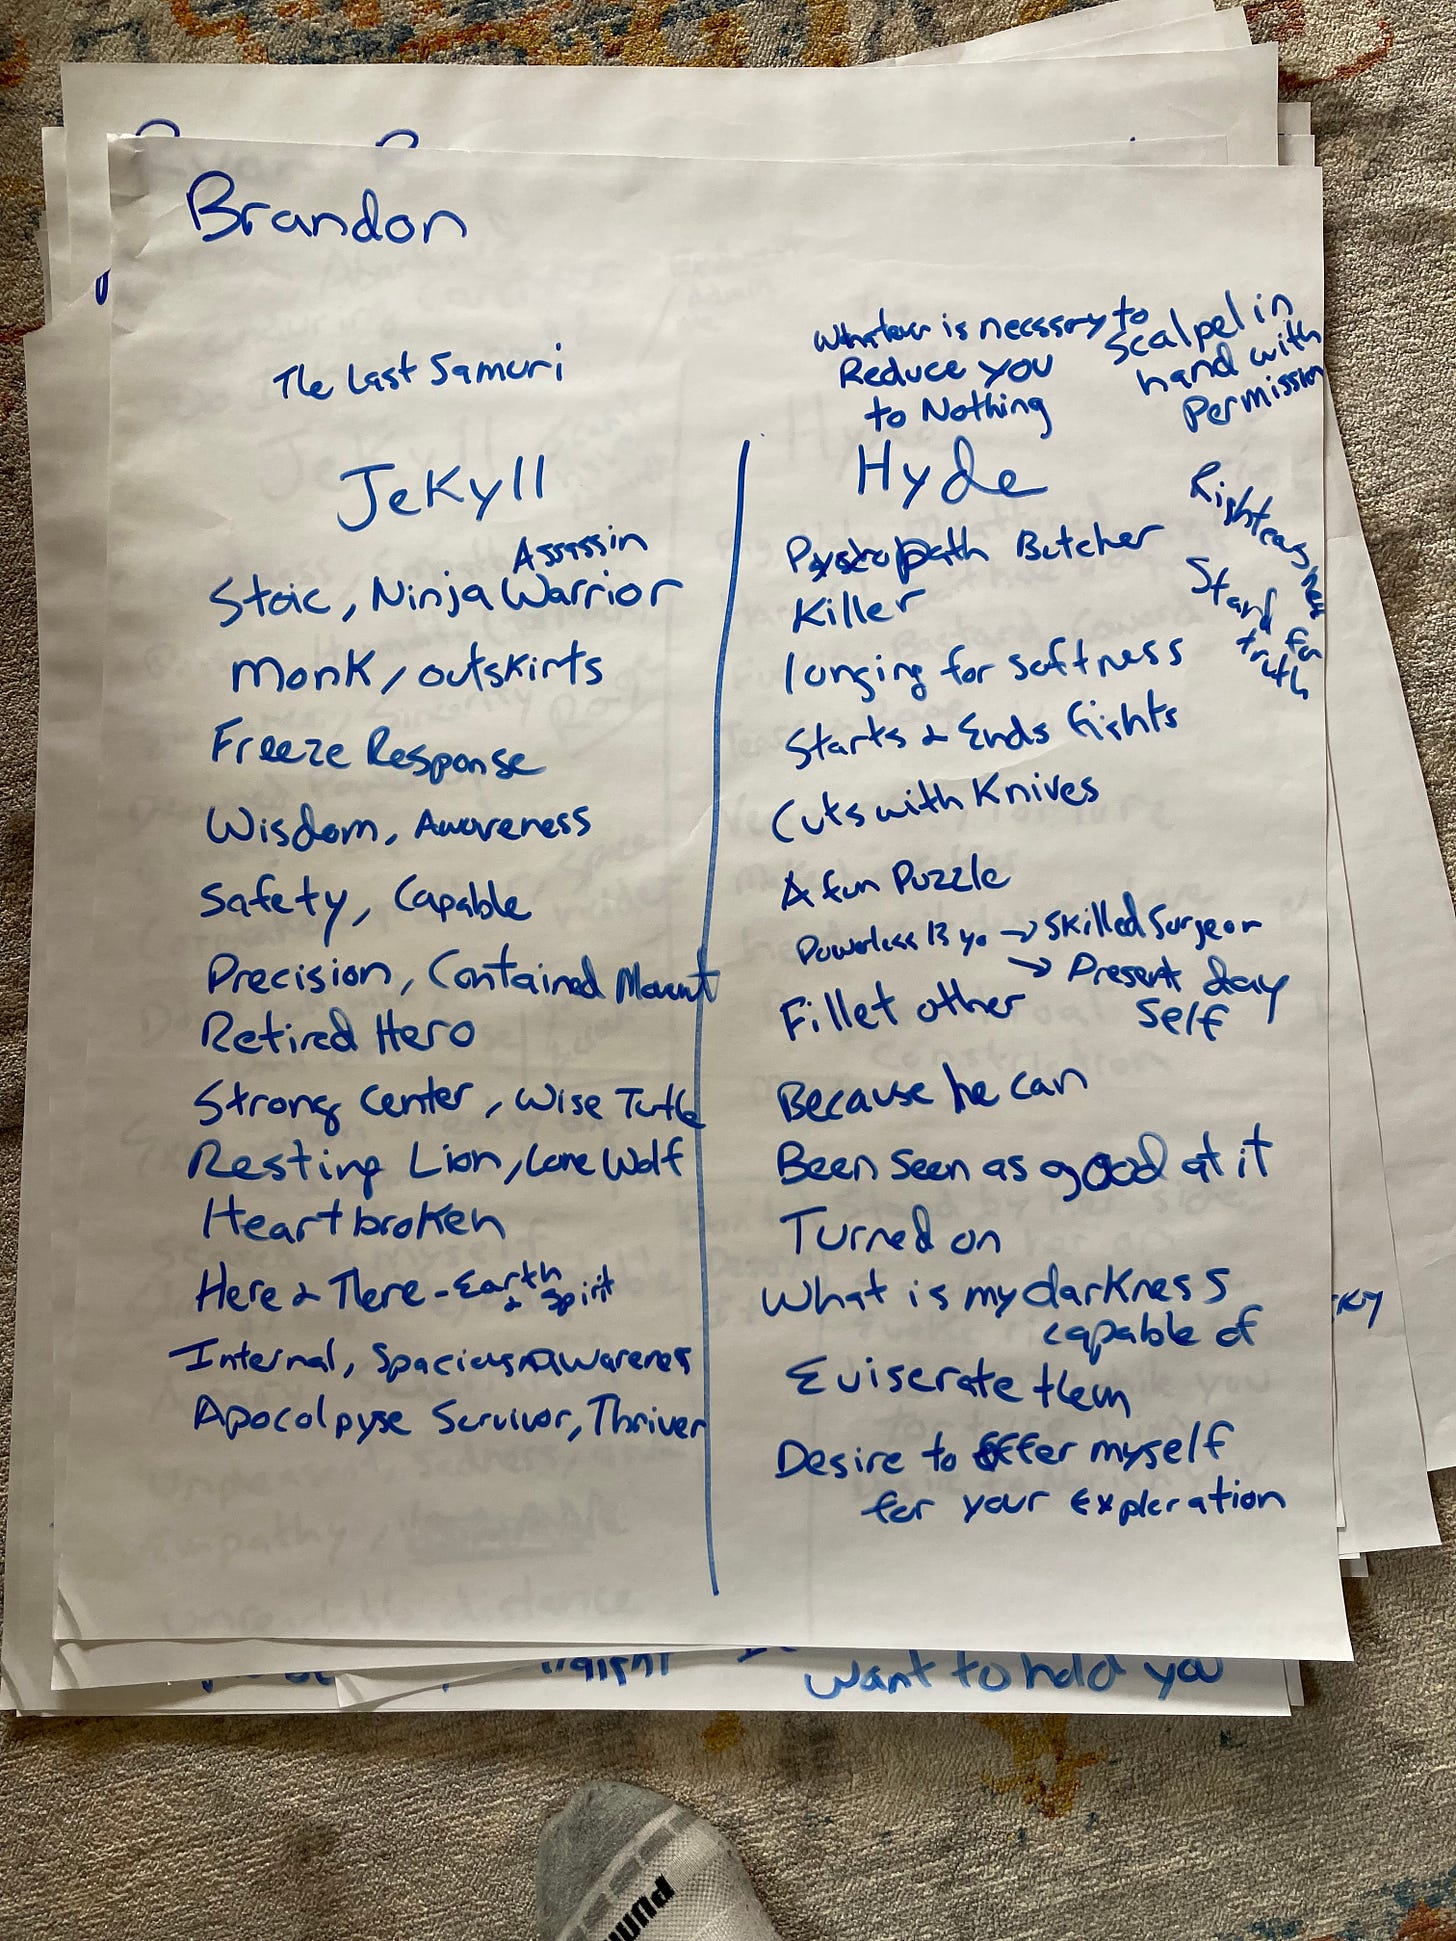 Brandon
The Last Samuri
Whatever is necssary to
Reduce you
to Nothing
Scalpel in
hand with
Permission
Jekyll
Hyde
Righteousness
Stand for
truth
Assassin
Stoic, Ninja Warrior
Monk, outskirts
Freeze Response
Wisdom, Awareness
Safety, Capable
Precision, Contained
Retired Hero
Strong Center, Wise Turtle
Resting Lion, Lone Wolf
Heartbroken
Here & There - Earth
& Spirit
Internal, Spacious Awareness
Apocolpyse Survivor, Thriver
Butcher
Killer
longing for softness
Starts & Ends fights
Cuts with Knives
A fun Puzzle
Powerless 13 yo → Skilled Surgeon
→ Present day
Self
Fillet other
Because he can
Been seen as good at it
Turned on
What is my darkness
capable of
Eviserate them
Desire to offer myself
for your Exploration
want to hold you